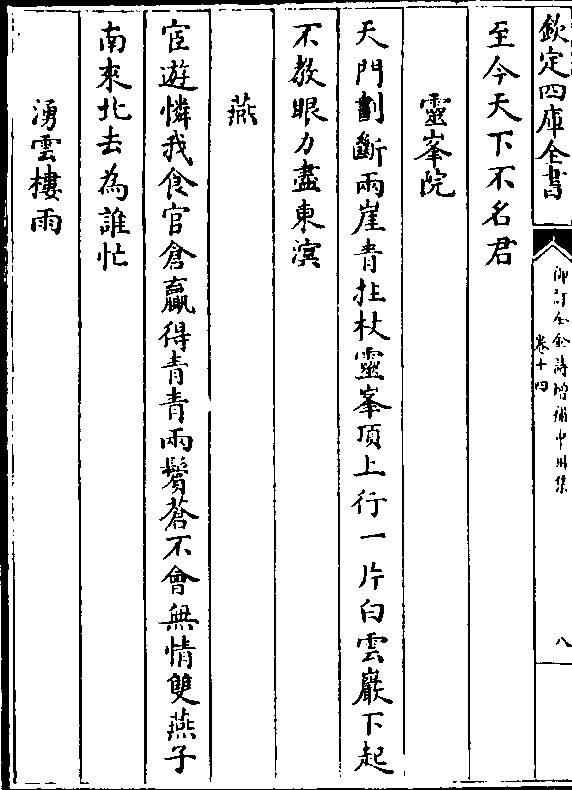 欽定四庫全書
御訂全金詩增補中州集
卷十四
八
至今天下不名君
靈峯院
天門劃斷兩崖青拄杖靈峯頂上行一片白雲巖下起
不教眼力盡東溟
燕
宦遊憐我食官倉贏得青青兩鬢蒼不會無情雙燕子
南來北去為誰忙
湧雲樓雨